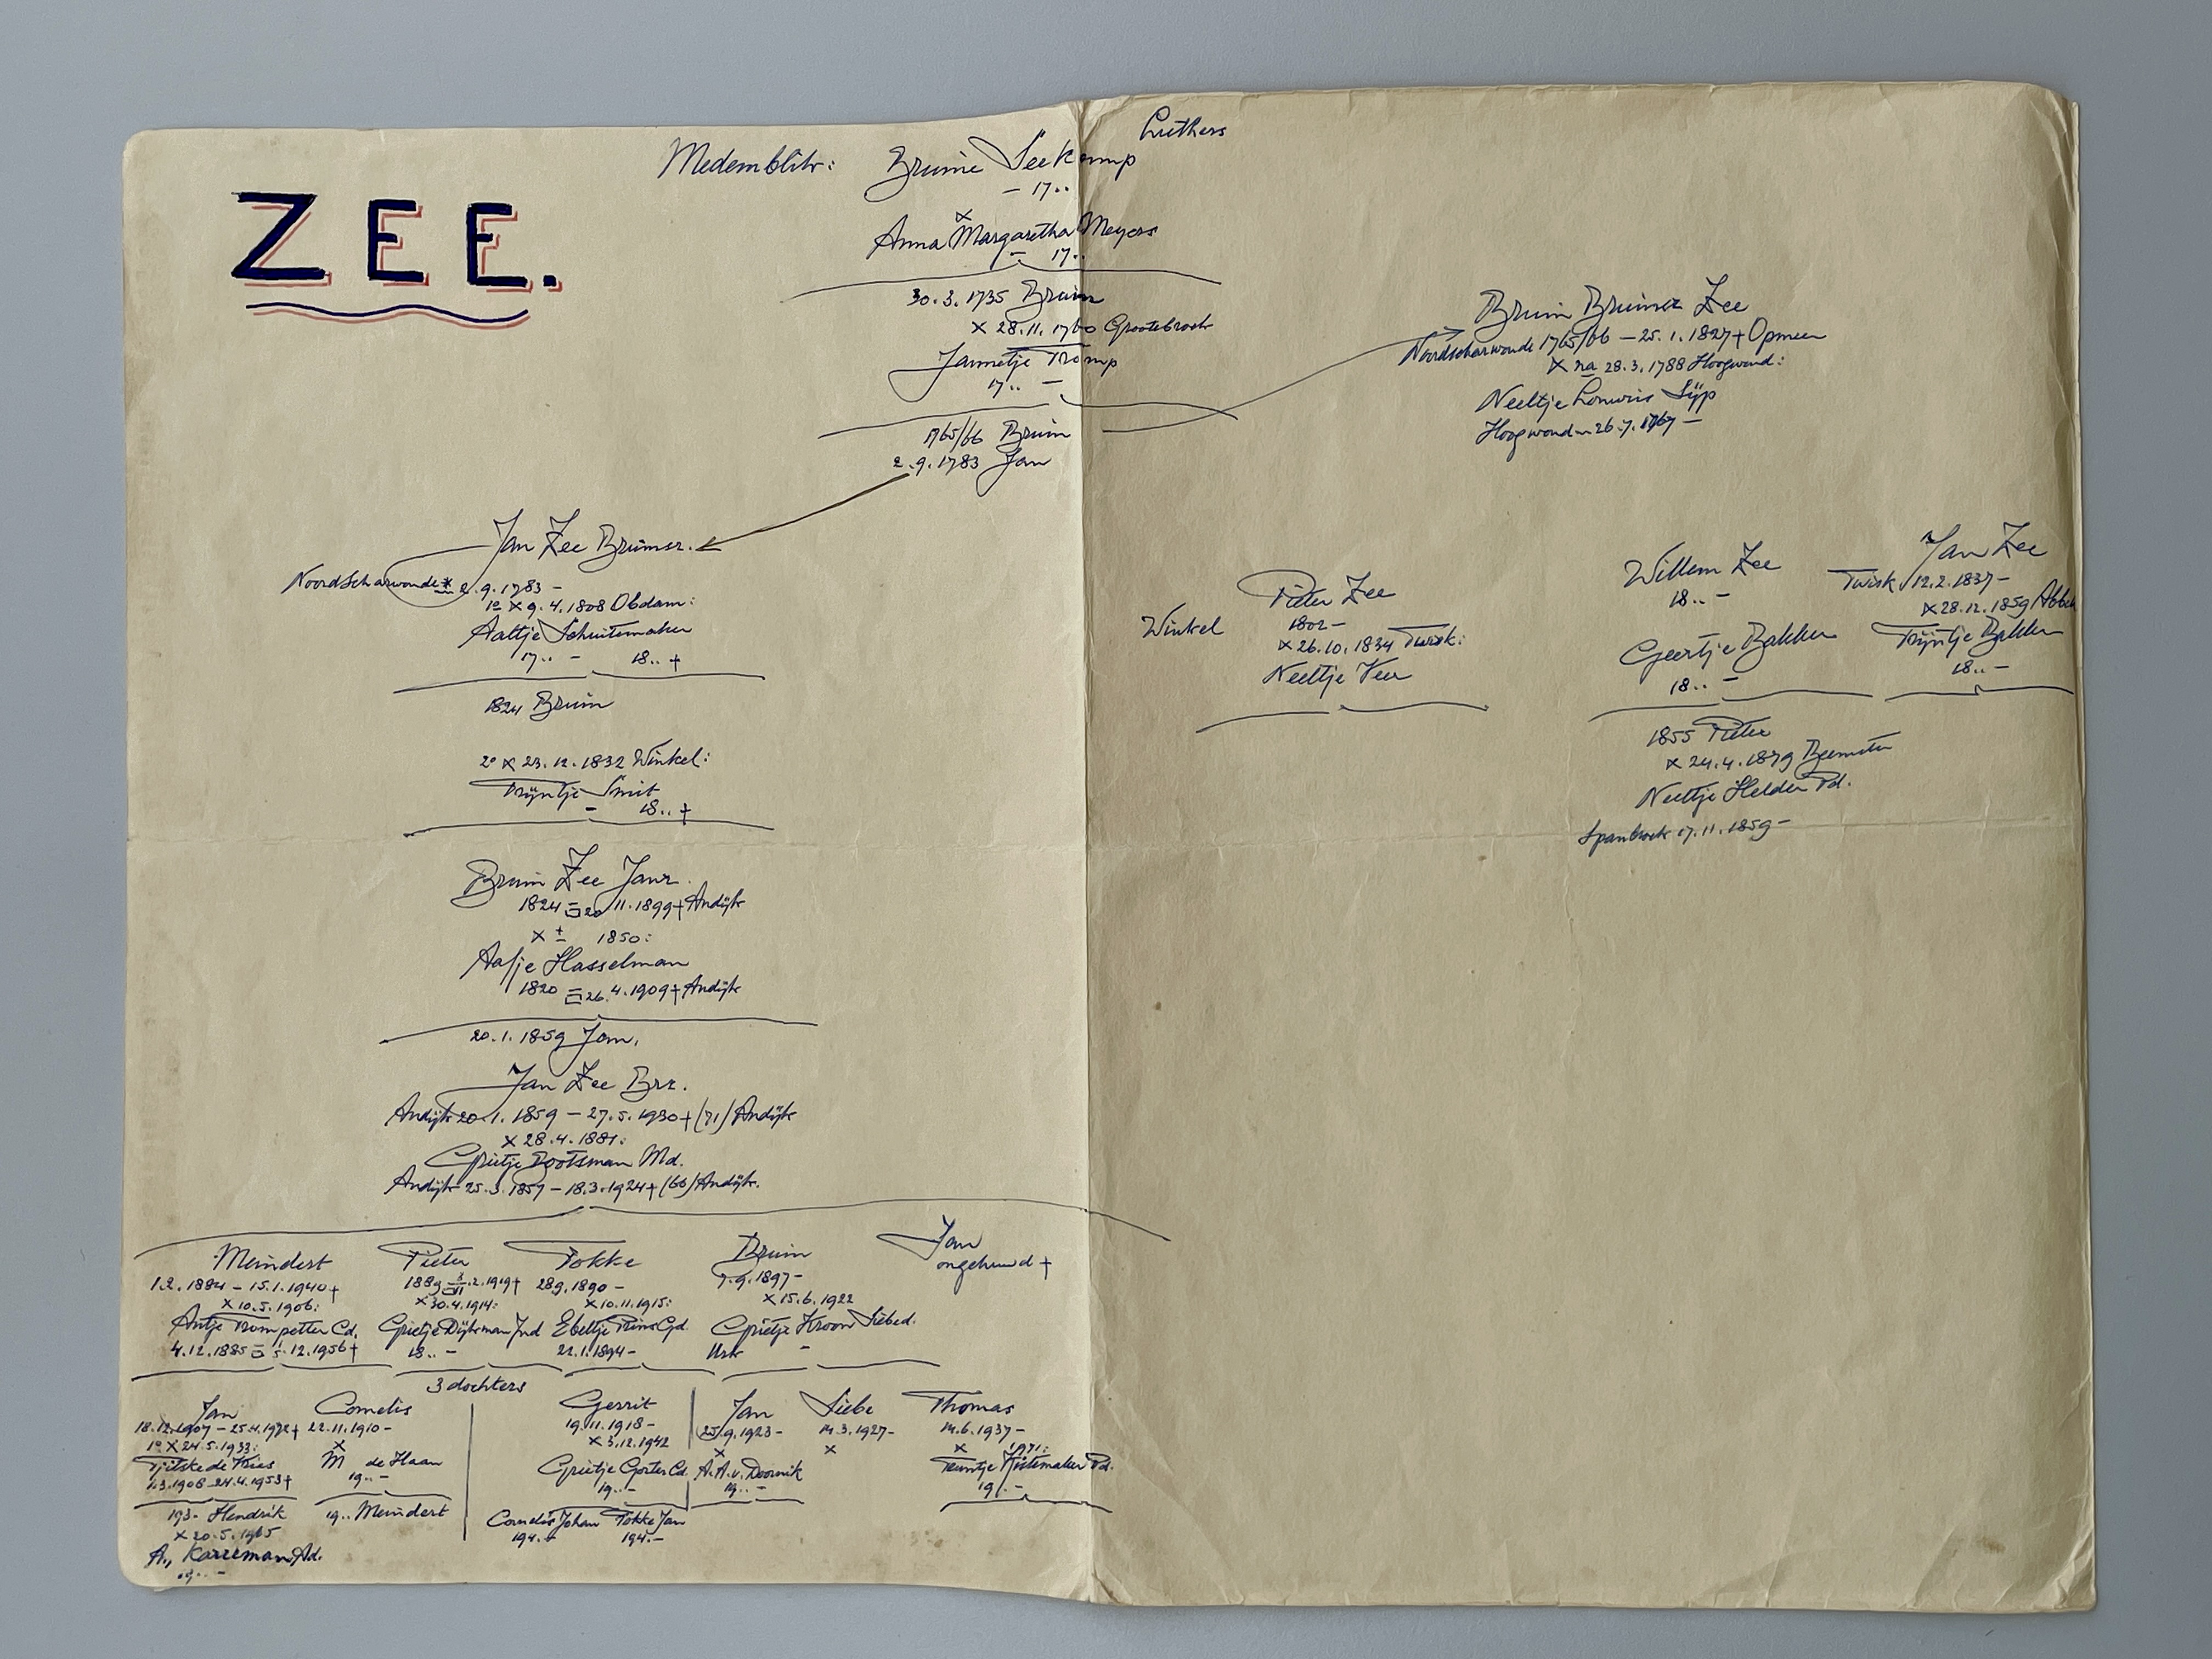 ZEE.
Luthers
Medemblik: Bruin Seekamp
- 17..
x
Anna Margaretha Meyers
- 17..
30.3.1735 Bruin
x 28.11.1760 Grootebroek
Jannetje Tromp
17.. -
1765/66 Bruin
2.9.1783 Jan
Bruin Bruinsz Zee
Noordscharwoude 1765/66 - 25.1.1827 + Opmeer
x na 28.3.1788 Hoogwoud:
Neeltje Louwris Sijp
Hoogwoud 26.7.1767 -
Jan Zee Bruinsz.
Noordscharwoude * 2.9.1783 -
1e x 9.4.1808 Obdam:
Aaltje Schuitemaker
17.. - 18.. +
1824 Bruin
2e x 23.12.1832 Winkel:
Trijntje Smit
- 18.. +
Bruin Zee Janz.
1824 - 20.11.1899 + Andijk
x ± 1850:
Aafje Hasselman
1820 - 26.4.1909 + Andijk
20.1.1859 Jan.
Jan Zee Brz.
Andijk 20.1.1859 - 27.5.1930 + (71) Andijk
x 28.4.1881:
Grietje Bootsman Md.
Andijk 25.3.1857 - 18.3.1924 + (66) Andijk.
Winkel
Pieter Zee
1802 -
x 26.10.1834 Twisk:
Neeltje Veer
Willem Zee
18.. -
Geertje Bakker
18.. -
1855 Pieter
x 24.4.1879 Beemster
Neeltje Helder Pd.
Spanbroek 17.11.1859 -
Jan Zee
Twisk 12.2.1837 -
x 28.12.1859 Abbek
Trijntje Bakker
18.. -
Meindert
1.2.1884 - 15.1.1940 +
x 10.5.1906:
Antje Trompetter Cd.
4.12.1885 5.12.1956 +
Pieter
1889 2.1919 +
x 30.4.1914:
Grietje Dijkman Jnd
18.. -
3 dochters
Fokke
28.9.1890 -
x 10.11.1915:
Ebeltje Prins Gd.
22.1.1894 -
Bruin
7.9.1897 -
x 15.6.1922
Grietje Kroon Siebed.
Urk -
Jan
ongehuwd +
Jan
18.12.1907 - 25.4.1972 +
1e x 24.5.1933:
Tjitske de Vries
1.3.1906 - 24.4.1953 +
193- Hendrik
x 20.5.1965
A., Karreman Ad.
19.. -
Cornelis
22.11.1910 -
x
M de Haan
19.. -
19.. Meindert
Gerrit
19.11.1918 -
x 3.12.1942
Grietje Gorter Cd.
19.. -
Cornelis Johan Fokke Jan
194. - 194. -
Jan
25.9.1923 -
x
A. A. v. Doornik
19.. -
Siebe
14.3.1927 -
x
Thomas
14.6.1937 -
x 1971:
Teuntje Kistemaker Pd.
19.. -